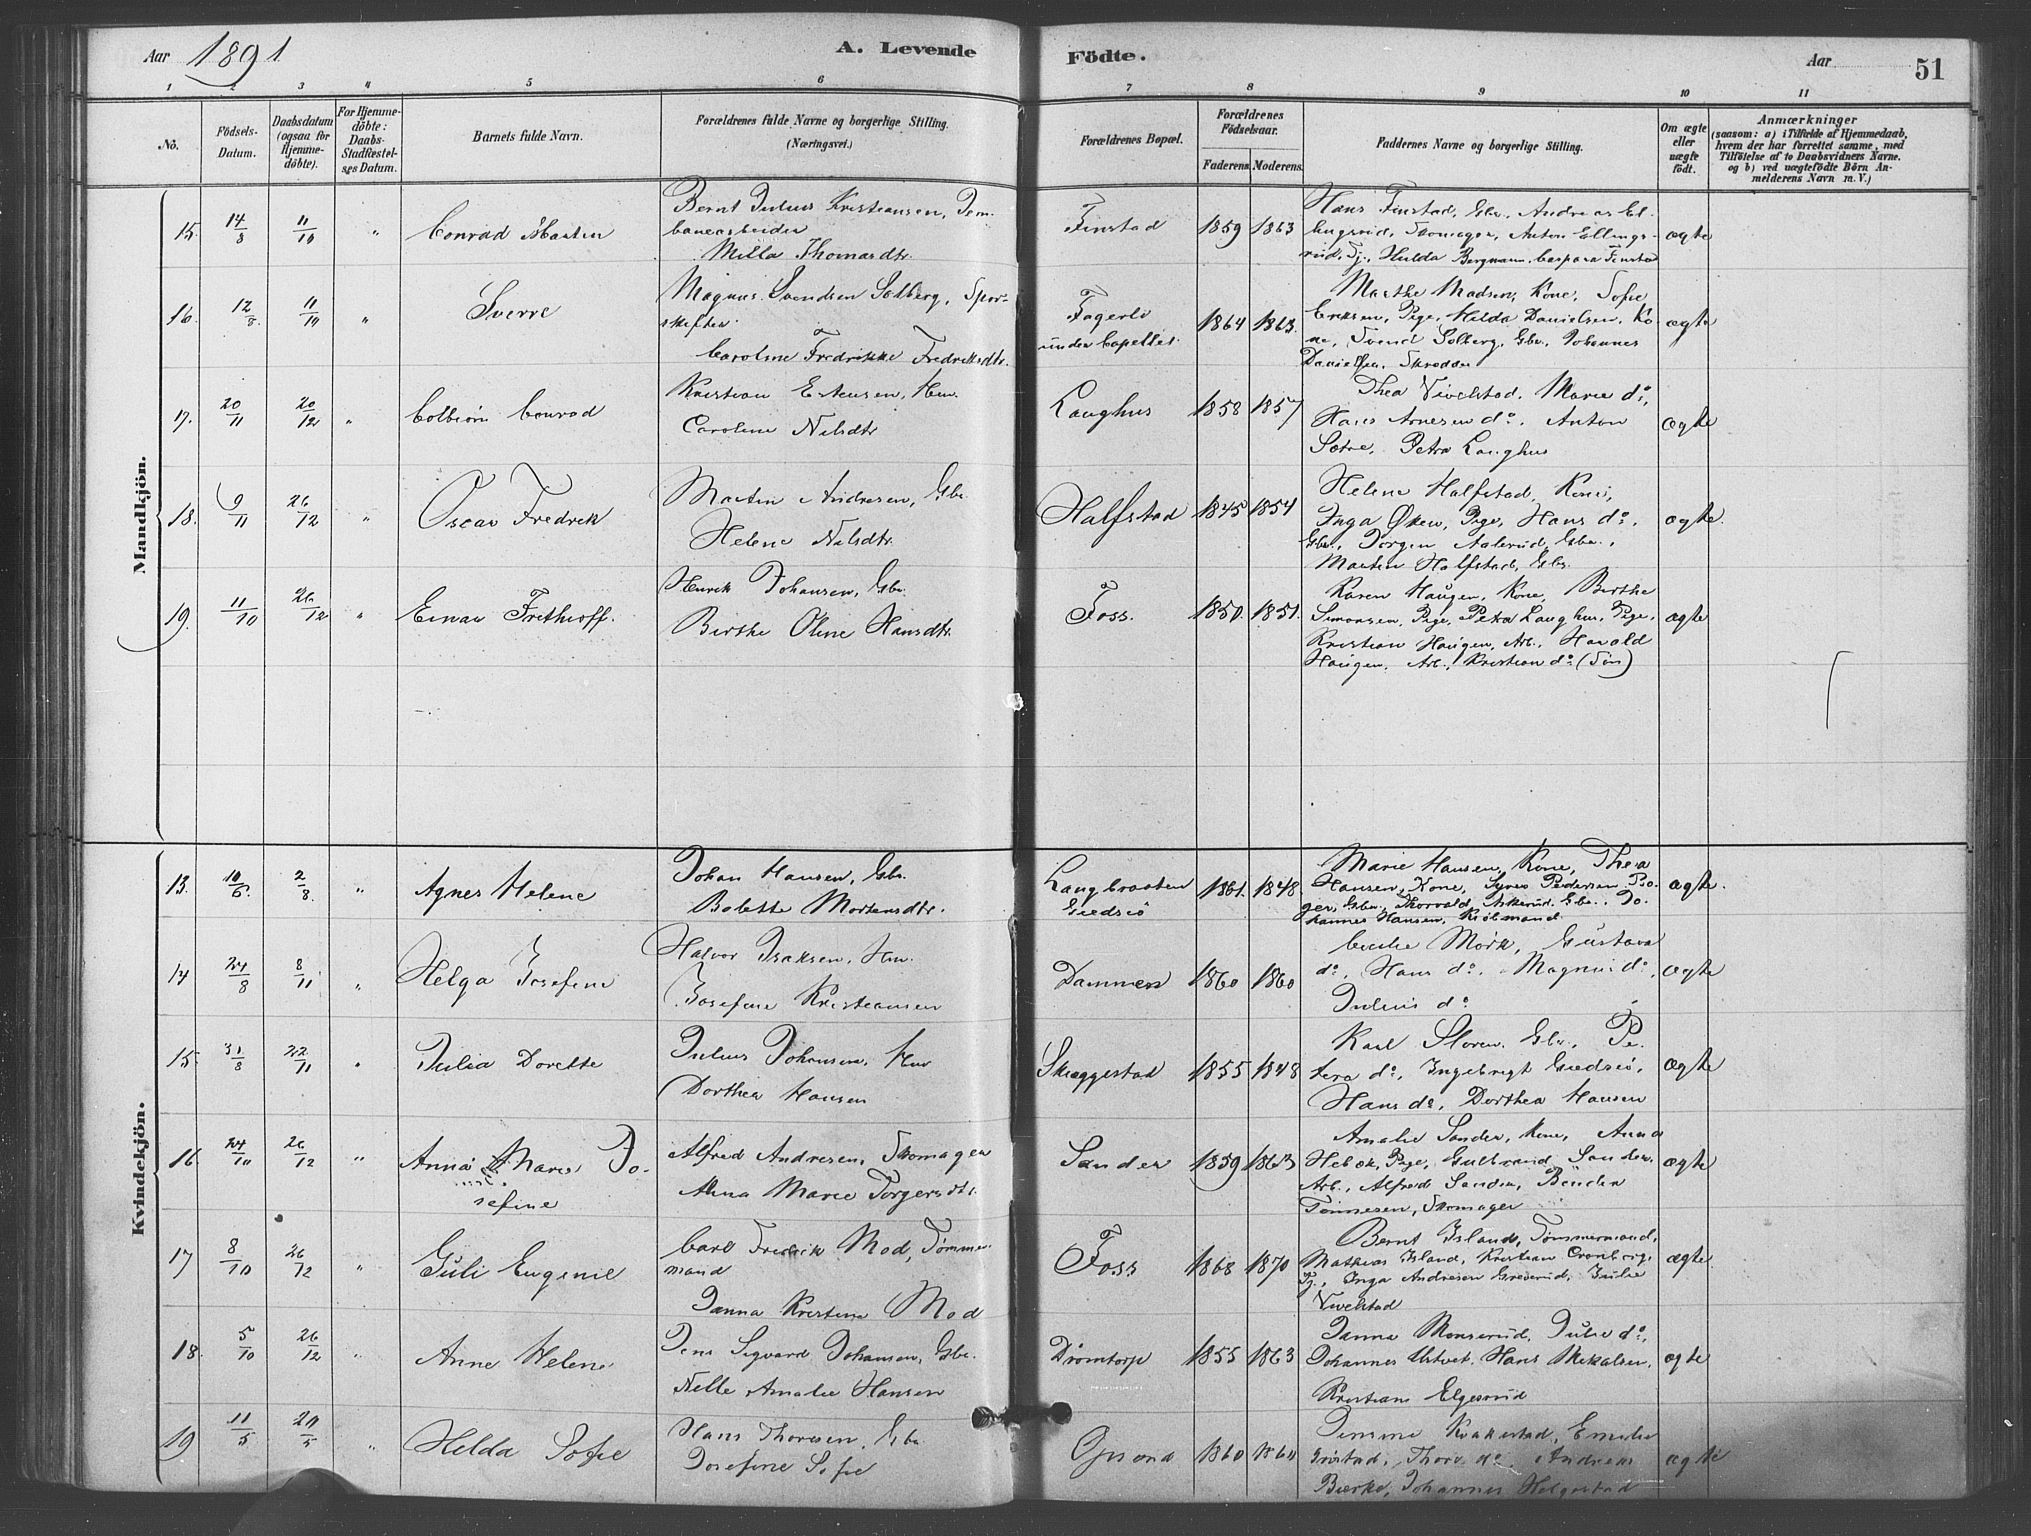 Aar 1891. A. Levende Födte. Aar 51
1 2 3 4 5 6 7 8 9 10 11
No.
Födsels-Datum.
Daabsdatum (ogsaa for Hjemmedöbte).
For Hjemmedöbte: Daabs-Stadfæstelses Datum.
Barnets fulde Navn.
Forældrenes fulde Navne og borgerlige Stilling. (Næringsvei.)
Forældrenes Bopæl.
Forældrenes Födselsaar.
Faderens. Moderens.
Faddernes Navne og borgerlige Stilling.
Om ægte eller uægte födt.
Anmærkninger
(saasom: a) i Tilfælde af Hjemmedaab, hvem der har forrettet samme, med Tilföielse af to Daabsvidners Navne. og b) ved uægtefödte Börn Anmelderens Navn m. V.)
Mandkjön.
15. 14/8 11/10 " Conrad Martin
Bernt Julius Kristiansen, Jern-
banearbeider
Milla Thomasdtr.
Finstad 1859 1863
Hans Finstad, Gbr., Andreas El-
lingsrud, Skomager, Anton Ellings-
rud, Tj., Hulda Bergmann, Caspara Finstad
ægte
16. 12/8. 11/10 " Sverre
Magnus Svendsen Solberg, Spor-
skifter.
Caroline Fredrikke Fredriksdtr.
Fagerli
under Capellet.
1864 1863.
Marthe Madsen, Kone, Sofie
Eriksen, Pige, Hilda Danielsen, Ko-
ne, Svend Solberg, Gbr., Johannes
Danielsen, Skrædder
ægte
17. 20/11 20/12 " Colbiörn Conrad
Kristian Estensen, Hm.
Caroline Nilsdtr
Langhus 1858 1857
Thea Vivelstad, Marie do,
Hans Arnesen do, Anton
Sætre, Petra Langhus
ægte
18. 9/11 26/12 " Oscar Fredrik
Martin Andresen, Gbr.
Helene Nilsdtr.
Halfstad 1845 1854
Helene Halfstad, Kone,
Inga Øken, Pige, Hans do,
Gbr., Jørgen Aslerud, Gbr.,
Martin Halfstad, Gbr.
ægte.
19. 11/10 26/12 " Einar Frithioff.
Henrik Johansen, Gbr.
Birthe Oline Hansdtr.
Foss. 1850. 1851.
Karen Haugen, Kone, Birthe
Simonsen, Pige, Petra Langhus, Pige,
Kristian Haugen, Arb., Harald
Haugen, Arb., Kristian do (Søn)
ægte
Kvindekjön.
13. 10/6 2/8. " Agnes Helene
Johan Hansen, Gbr.
Bolette Mortensdtr.
Langbraaten
Gjedsiö
1851. 1848.
Marie Hansen, Kone, Thea
Hansen, Kone, Syver Pedersen,
Gbr., Thorvald Askerud, Gbr., Jo-
hannes Hansen, Kiöbmand
ægte.
14 24/8 8/11 " Helga Josefine
Halvor Isaksen, Hm.
Josefine Kristiansen
Dammen 1860 1860
Cecilie Mörk, Gustava
do, Hans do, Magnus do,
Julius do
ægte
15. 31/8 22/11 " Julia Dorette
Julius Johansen, Hm
Dorthea Hansen
Skeggestad 1855 1848
Karl Storen, Gbr., Pe-
tera do, Ingebrigt Gjedsiö,
Hans do, Dorthea Hansen
ægte
16. 24/10 26/12 " Anna Marie Jo-
sefine
Alfred Andresen, Skomager
Anna Marie Torgersdtr.
Sander 1859 1863
Amalie Sander, Kone, Anna
Hebæk, Pige, Gulbrand Sander,
Arb., Alfred Sander,
Tönnesen, Skomager
ægte
17 8/10 26/12 " Juli Eugenie
Carl Fredrik Mod, Tømmer-
mand
Janna Kristine Mod
Foss 1868 1870
Bernt Island, Tømmermand,
Mathias Island, Kristian Cronborg,
Tj., Inga Andresen Grøderud, Julie
Vivelstad
ægte
18. 5/10 26/12 " Anne Helene
Jens Sigvard Johansen, Gbr.
Nelle Amalie Hansen
Drömtorp 1855 1863
Janna Monserud, Julie do,
Johannes Ustvet, Hans Mikalsen,
Kristians Elgesrud
ægte
19 11/5 " Helda Sofie
Hans Thoresen, Gbr
Josefine Sofie
Opsand 1860 1860
Kråkestad, Emilie
do, Andreas
Bierke, Johannes Helgestad
ægte